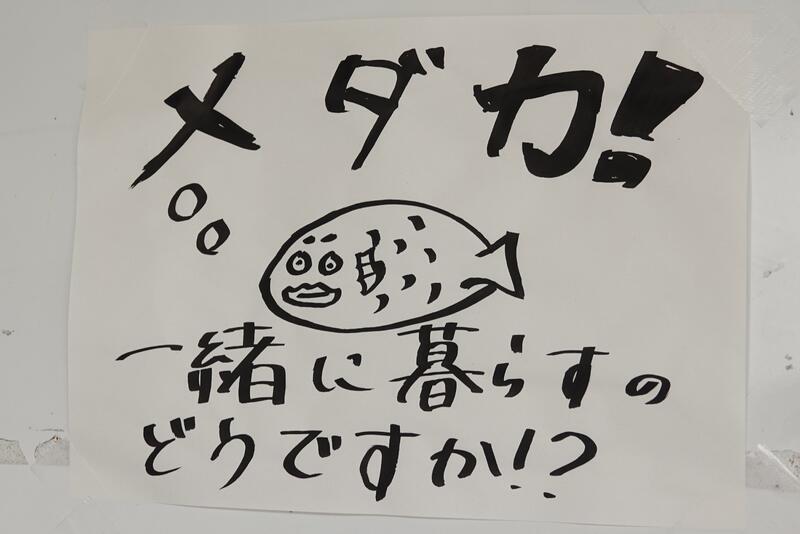 メダカ!
一緒に暮らすの
どうですか!?